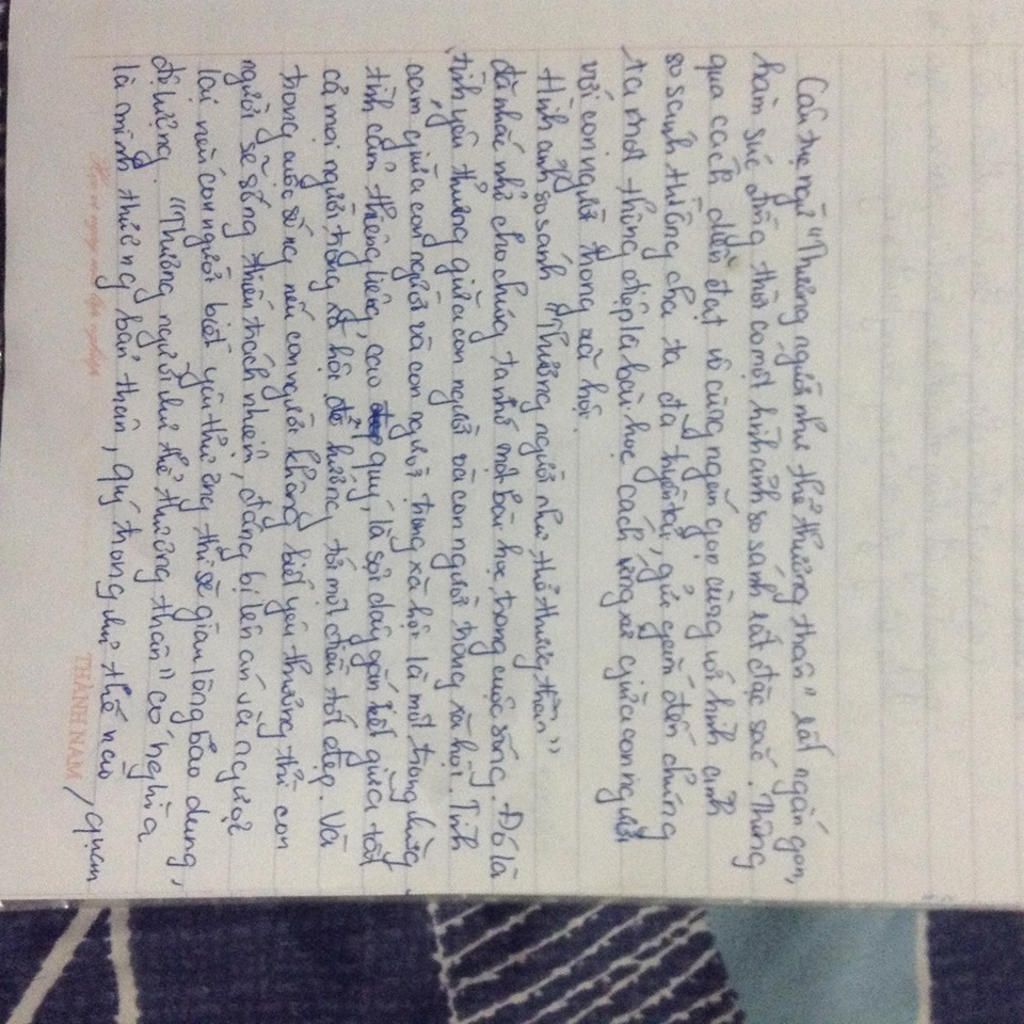 Câu tục ngữ "Thương người như thể thương thân" rất ngắn gọn,
hàm súc đồng thời có một hình ảnh so sánh rất đặc sắc. Thông
qua cách diễn đạt vô cùng ngắn gọn cùng với hình ảnh
so sánh thường cha ta đã truyền tải, gửi gắm đến chúng
ta một thông điệp là bài học cách ứng xử giữa con người
với con người trong xã hội.
Hình ảnh so sánh "Thương người như thể thương thân"
đã nhắc nhở cho chúng ta nhớ một bài học trong cuộc sống. Đó là
tình yêu thương giữa con người và con người trong xã hội. Tình
cảm giữa con người và con người trong xã hội là một trong những
tình cảm thiêng liêng, cao quý, là sợi dây gắn kết giữa tất
cả mọi người trong xã hội để hướng tới một điều tốt đẹp. Và
trong cuộc sống nếu con người không biết yêu thương thì con
người sẽ sống thiếu trách nhiệm, đáng bị lên án và ngược
lại nếu con người biết yêu thương thì sẽ giàu lòng bao dung,
độ lượng. "Thương người như thể thương thân" có nghĩa
là mình thương bản thân, quý trọng như thế nào
/ quan
THÀNH NAM